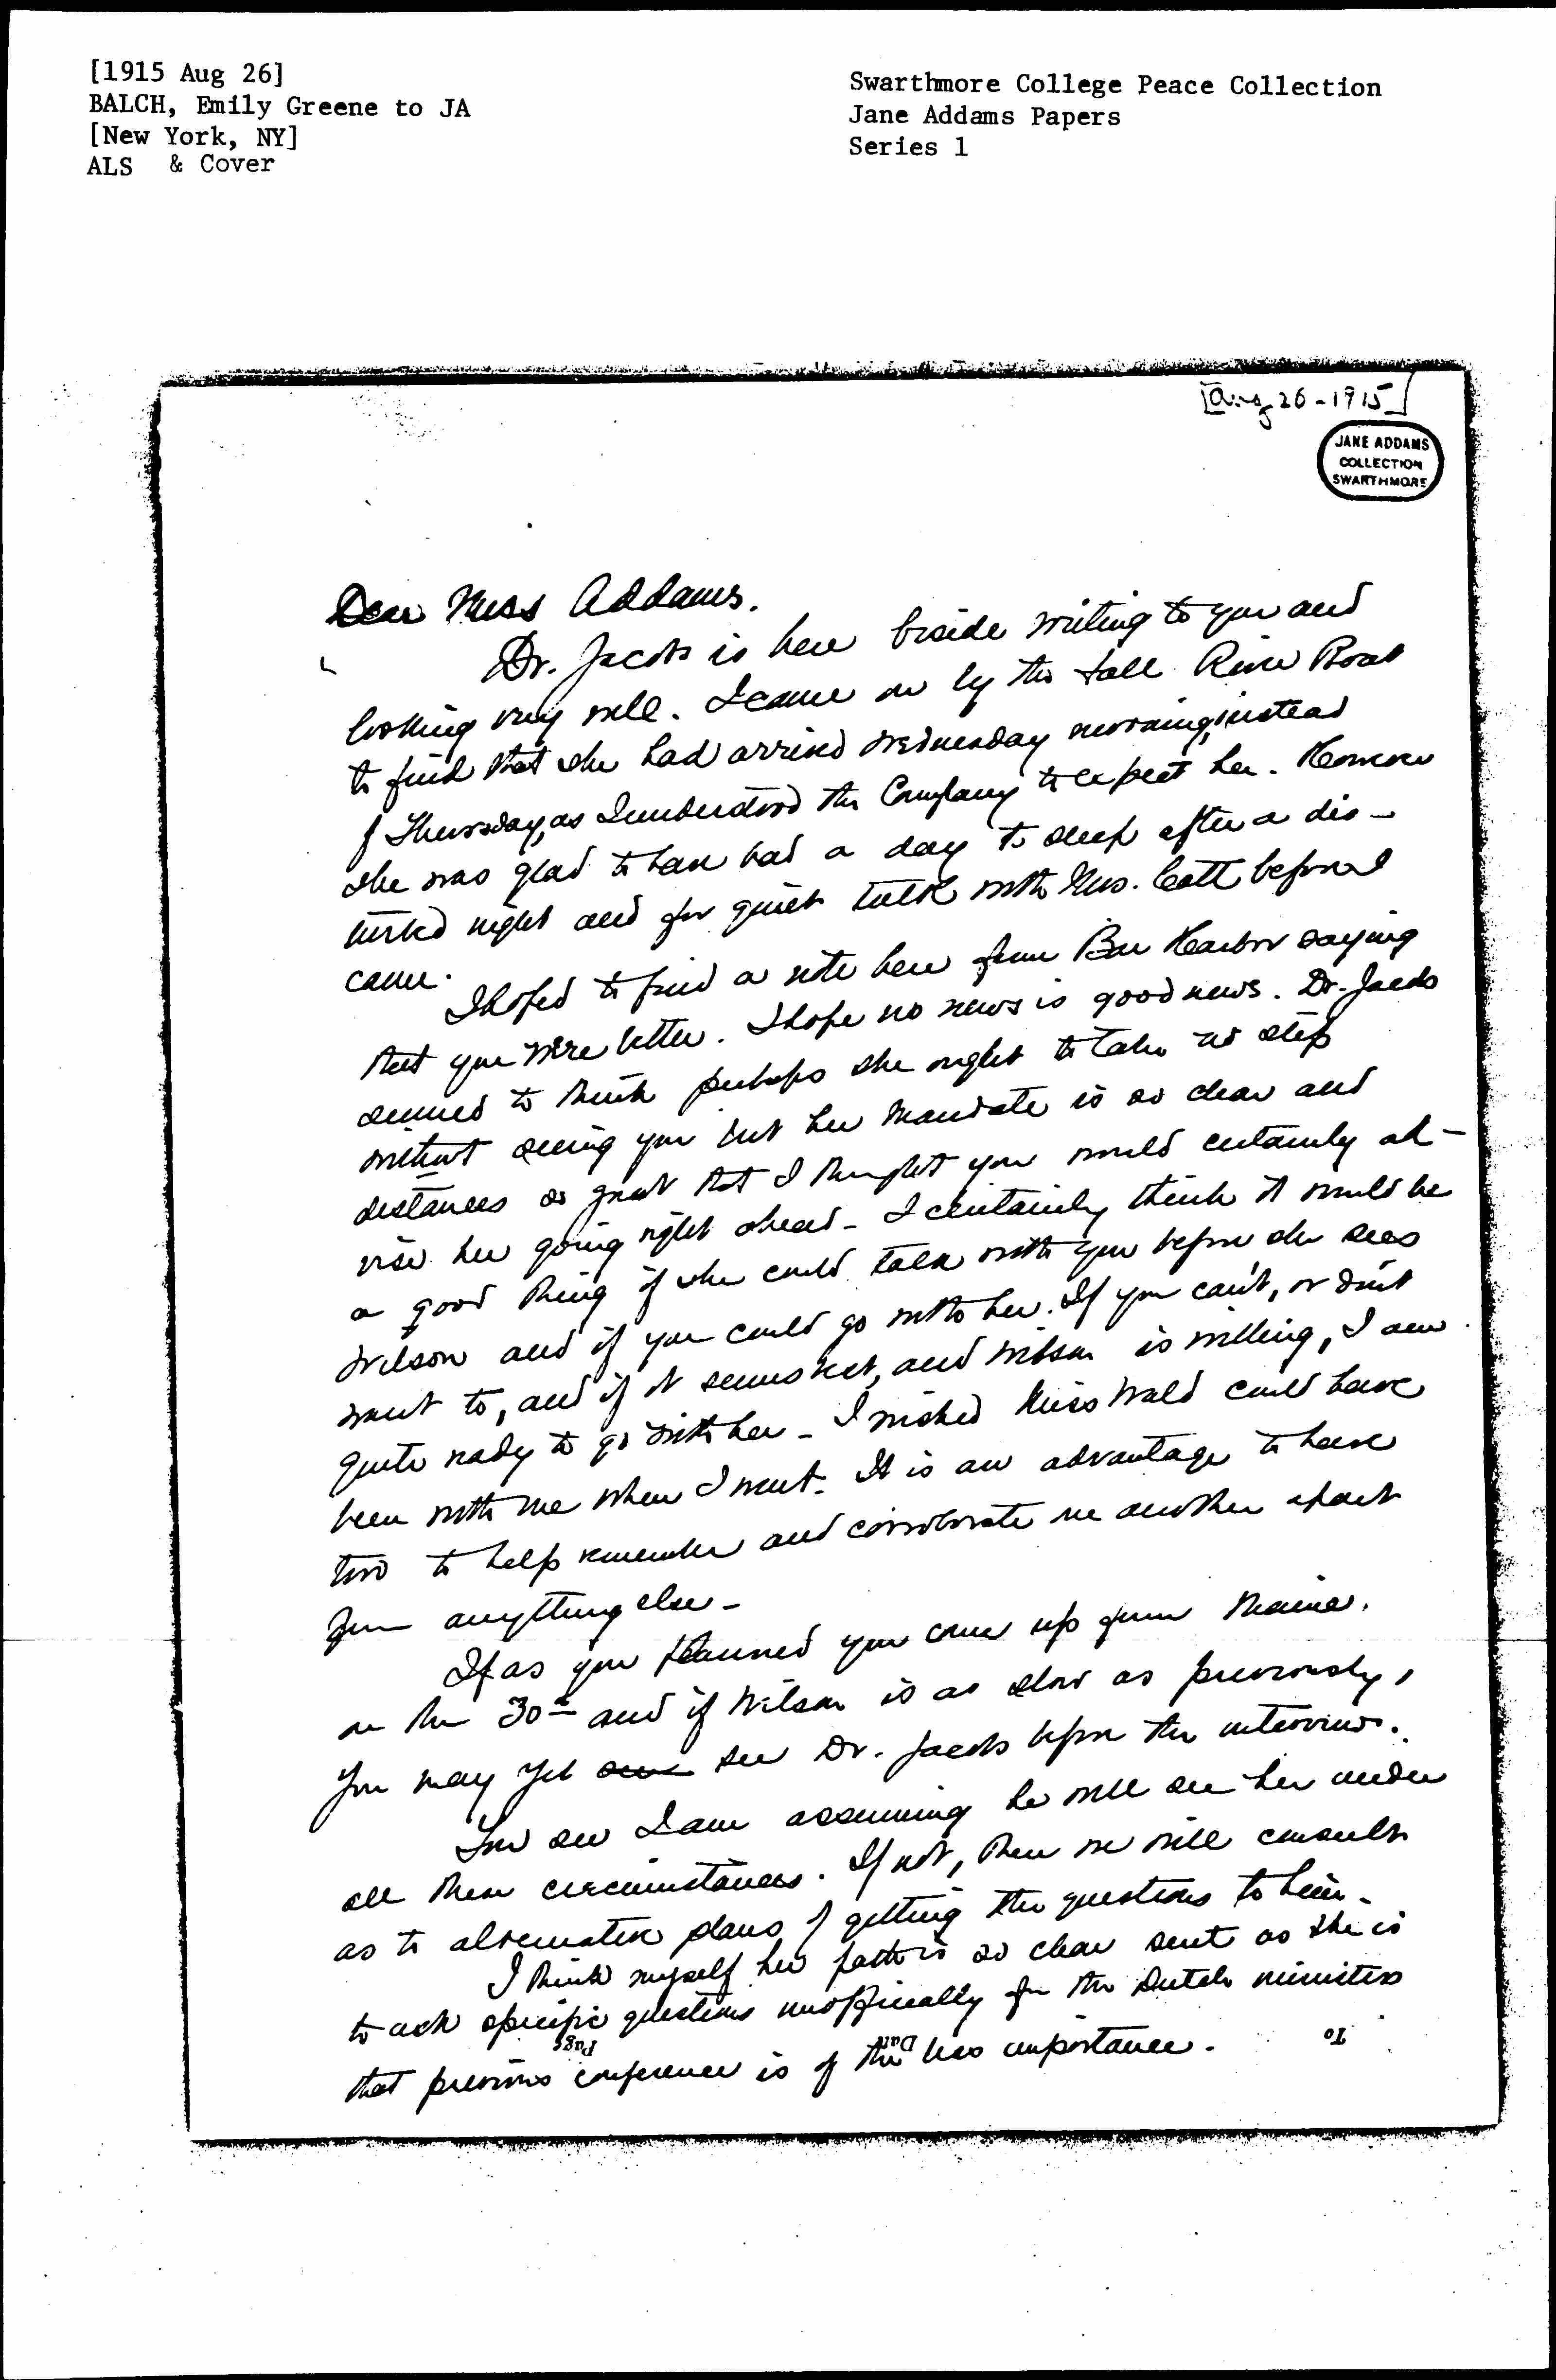 [1915 Aug 26]
BALCH, Emily Greene to JA
[New York, NY]
ALS & Cover
Swarthmore College Peace Collection
Jane Addams Papers
Series 1
[Aug 26-1915]
JANE ADDAMS
COLLECTION
SWARTHMORE
Dear Miss Addams.
Dr. Jacobs is here beside writing to you and
looking very well. I came on by the Fall River Boat
to find that she had arrived Wednesday morning, instead
of Thursday, as I understood the Company to expect her. However
she was glad to have had a day to sleep after a dis-
turbed night and for quiet talk with Mrs. Catt before I
came.
I hoped to find a note here from Bar Harbor saying
that you were better. I hope no news is good news. Dr. Jacobs
seemed to think perhaps she ought to take no step
without seeing you but her mandate is so clear and
distances so great that I thought you would certainly ad-
vise her going right ahead - I certainly think it would be
a good thing if she could talk with you before she sees
Wilson and if you could go with her. If you can't, or don't
want to, and if it seems best, and Wilson is willing, I am
quite ready to go with her - I wished Miss Wald could have
been with me when I went. It is an advantage to have
two to help remember and corroborate one another apart
from anything else -
If as you planned you come up from Maine.
on the 30th and if Wilson is as slow as previously,
you may yet see Dr. Jacobs before the interview.
You see I am assuming he will see her under
all these circumstances. If not, then we will consult
as to alternative plans of getting the questions to him -
I think myself her path is so clear sent as she is
to ask specific questions unofficially for the Dutch ministers
that previous conference is of the less importance.